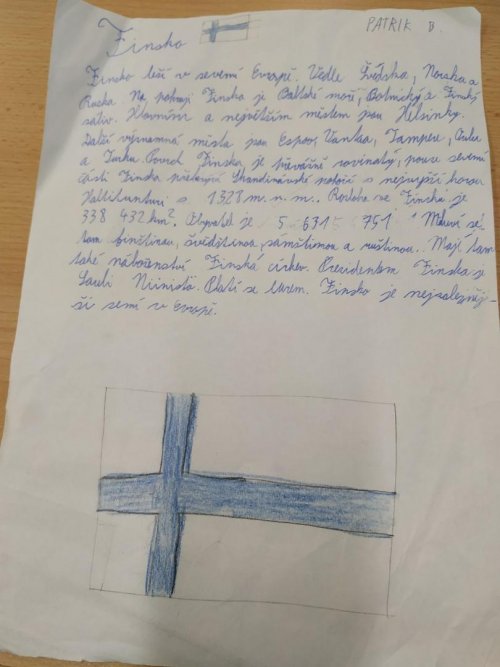 Finsko
PATRIK B
Finsko leží v severní Evropě. Vedle Švédska, Norska a
Ruska. Na pobřeží Finska je Baltské moře, Botnický a Finský
záliv. Hlavním a největším městem jsou Helsinky.
Další významná města jsou Espoo, Vantaa, Tampere, Oulu
a Turku. Povrch Finska je převážně rovinatý, pouze severní
části Finska Skandinávské pohoří s nejvyšší horou
Haltitunturi s 1323 m. n. m. Rozloha ve Finsku je
338 432 km². Obyvatel je 5 631 751 Mluví se
tam finštinou, švédštinou, sámštinou a ruštinou. Mají tam
také náboženství Finská církev. Prezidentem Finska je
Sauli Niinistö. Platí se Eurem. Finsko je nejzalejněj-
ší zemí v Evropě.